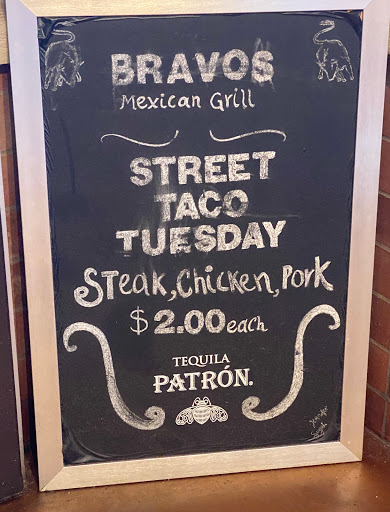 BRAVOS
Mexican Grill
STREET
TACO
TUESDAY
Steak, Chicken, Pork
$2.00 each
TEQUILA
PATRÓN.